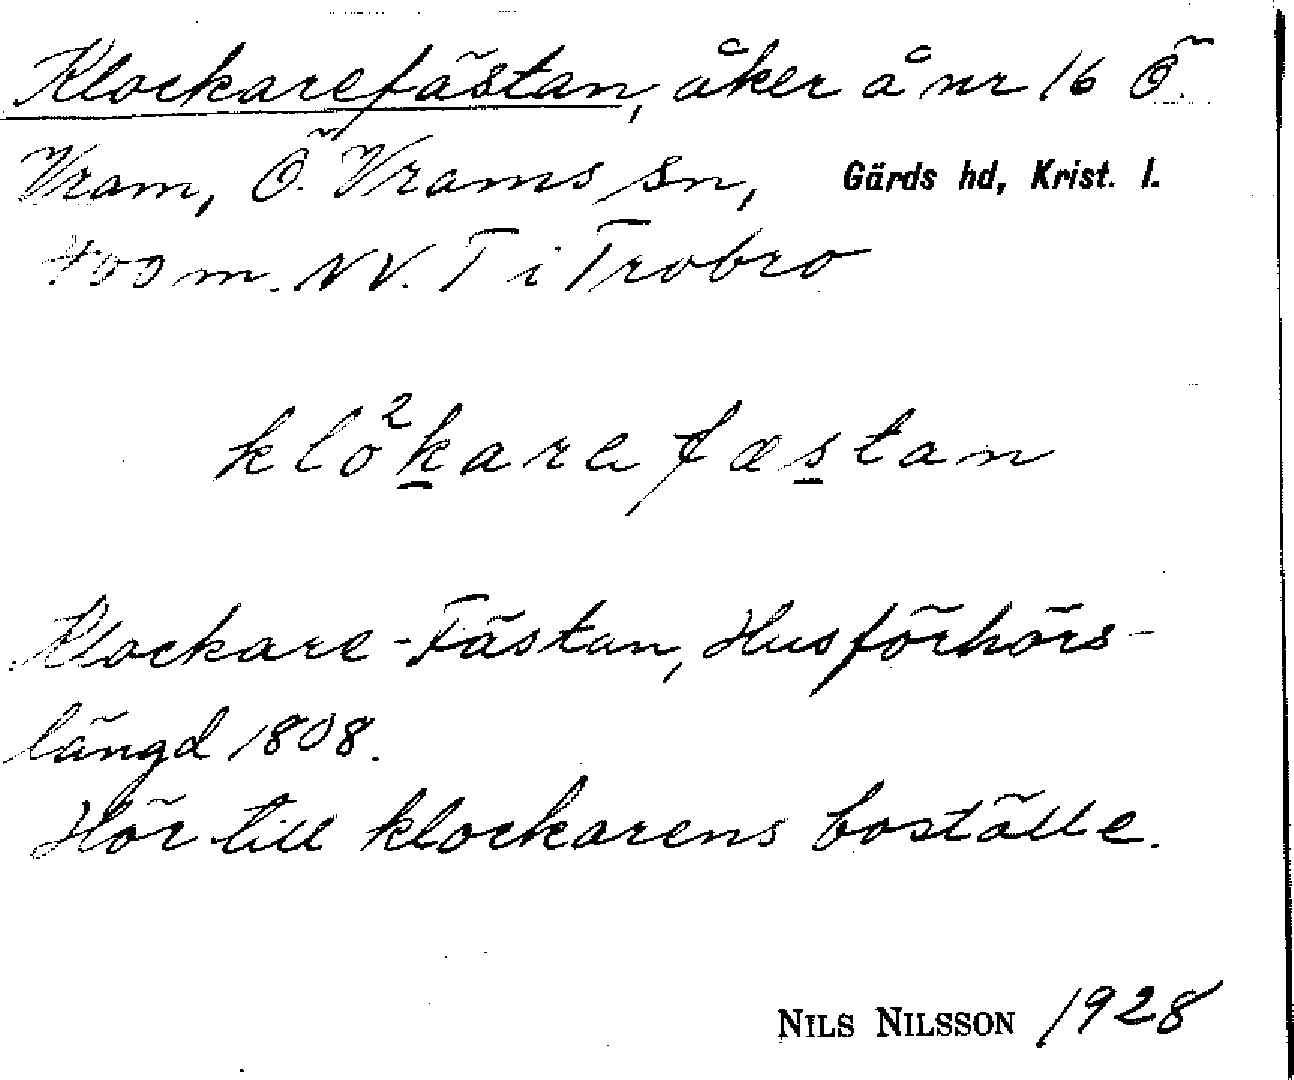 Klockarefästan, åker å nr 16 Ö.
Vram, Ö. Vrams sn, Gärds hd, Krist. l.
400 m. NV. T i Trobro
klo²karefæstan
Klockare-Fästan, Husförhörs-
längd 1808.
Hör till klockarens boställe.
NILS NILSSON 1928